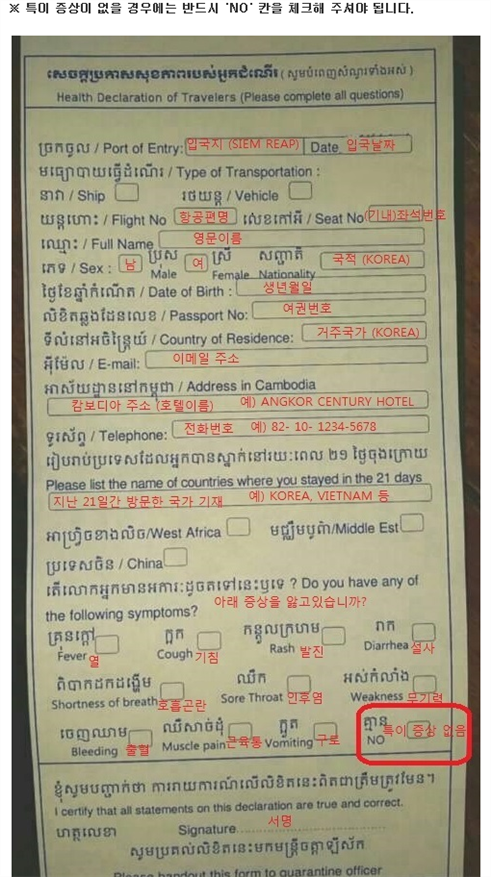 ※ 특이 증상이 없을 경우에는 반드시 'NO' 칸을 체크해 주셔야 됩니다.
សេចក្តីប្រកាសសុខភាពរបស់អ្នកដំណើរ (សូមបំពេញសំណួរទាំងអស់)
Health Declaration of Travelers (Please complete all questions)
ច្រកចូល / Port of Entry: 입국지 (SIEM REAP) Date 입국날짜
មធ្យោបាយធ្វើដំណើរ / Type of Transportation :
នាវា / Ship រថយន្ត / Vehicle
យន្តហោះ / Flight No 항공편명 លេខកៅអី / Seat No (기내)좌석번호
ឈ្មោះ / Full Name 영문이름
ភេទ / Sex : 남 ប្រុស Male 여 ស្រី Female សញ្ជាតិ Nationality 국적 (KOREA)
ថ្ងៃខែឆ្នាំកំណើត / Date of Birth : 생년월일
លិខិតឆ្លងដែនលេខ / Passport No: 여권번호
ទីលំនៅអចិន្ត្រៃយ៍ / Country of Residence: 거주국가 (KOREA)
អ៊ីម៉ែល / E-mail: 이메일 주소
អាស័យដ្ឋាននៅកម្ពុជា / Address in Cambodia
캄보디아 주소 (호텔이름) 예) ANGKOR CENTURY HOTEL
ទូរស័ព្ទ / Telephone: 전화번호 예) 82- 10- 1234-5678
រៀបរាប់ប្រទេសដែលអ្នកបានស្នាក់នៅរយៈពេល ២១ ថ្ងៃចុងក្រោយ
Please list the name of countries where you stayed in the 21 days
지난 21일간 방문한 국가 기재 예) KOREA, VIETNAM 등
អាហ្វ្រិចខាងលិច/West Africa មជ្ឈឹមបូព៌ា/Middle Est
ប្រទេសចិន / China
តើលោកអ្នកមានអាការៈដូចតទៅនេះឬទេ ? Do you have any of
the following symptoms? 아래 증상을 앓고있습니까?
គ្រុនក្តៅ ក្អក កន្ទួលក្រហម រាក
Fever 열 Cough 기침 Rash 발진 Diarrhea 설사
ពិបាកដកដង្ហើម ឈឺក អស់កំលាំង
Shortness of breath 호흡곤란 Sore Throat 인후염 Weakness 무기력
ចេញឈាម ឈឺសាច់ដុំ ក្អួត គ្មាន
Bleeding 출혈 Muscle pain 근육통 Vomiting 구토 NO 특이 증상 없음
ខ្ញុំសូមបញ្ជាក់ថា ការរាយការណ៍លើលិខិតនេះពិតជាត្រឹមត្រូវមែន។
I certify that all statements on this declaration are true and correct.
ហត្ថលេខា Signature 서명
សូមប្រគល់លិខិតនេះមកមន្ត្រីចត្តាឡីស័ក
Please handout this form to quarantine officer